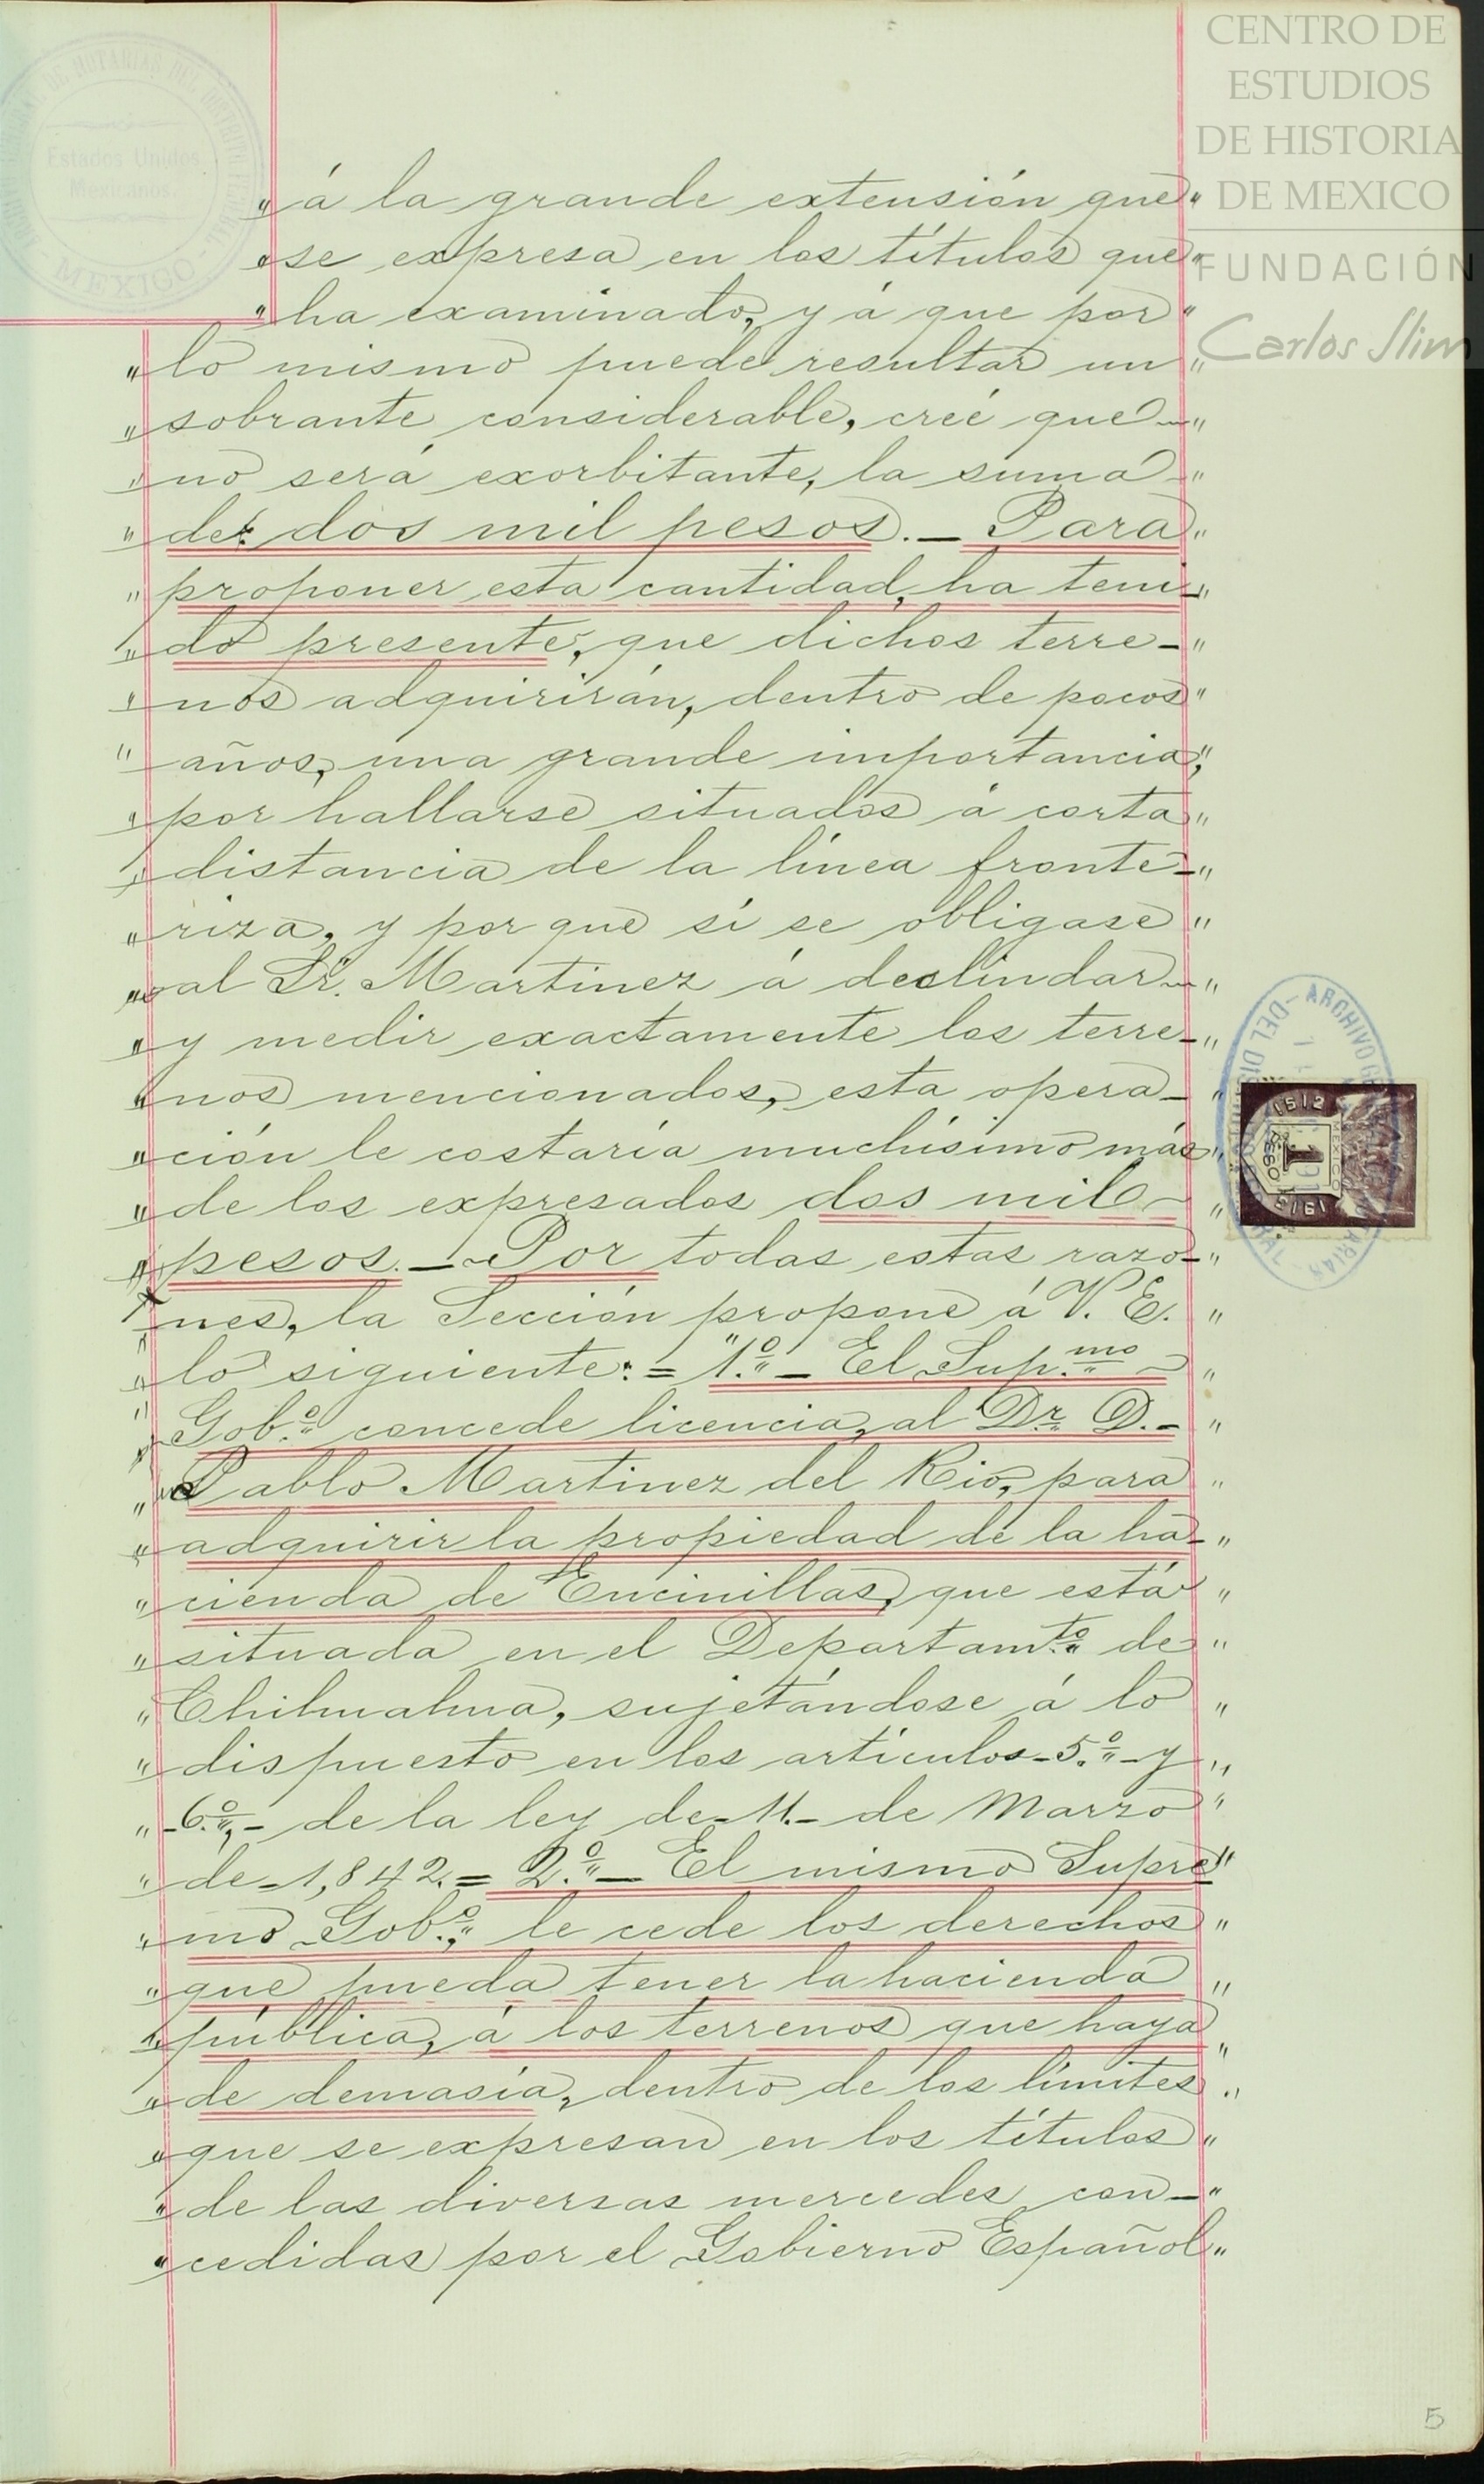 CENTRO DE
ESTUDIOS
DE HISTORIA
DE MEXICO
FUNDACIÓN
Carlos Slim
Estados Unidos
Mexicanos
MEXICO
"á la grande extensión que"
"se expresa en los títulos que"
"ha examinado, y á que por"
"lo mismo puede resultar un"
"sobrante considerable, creé que"
"no será exorbitante, la suma"
"de: dos mil pesos.— Para"
"proponer esta cantidad, ha teni-"
"do presente, que dichos terre-"
"nos adquirirán, dentro de pocos"
"años, una grande importancia,"
"por hallarse situados á corta"
"distancia de la línea fronte-"
"riza, y por que si se obligase"
"al Sr. Martinez á deslindar"
"y medir exactamente los terre-"
"nos mencionados, esta opera-"
"ción le costaría muchísimo más"
"de los expresados dos mil"
"pesos.— Por todas estas razo-"
"nes, la Sección propone á V. E."
"lo siguiente: = "1.º— El Sup.mo"
"Gob.º concede licencia, al Dr. D.-"
"Pablo Martinez del Rio, para"
"adquirir la propiedad de la ha-"
"cienda de Encinillas, que está"
"situada en el Departam.to de"
"Chihuahua, sujetándose á lo"
"dispuesto en los artículos-5.º-y"
"-6.º,- de la ley de-11.- de Marzo"
"de-1,842.= 2.º— El mismo Supre"
"mo Gob.º, le cede los derechos"
"que pueda tener la hacienda"
"pública, á los terrenos que haya"
"de demasía, dentro de los límites"
"que se expresan en los títulos"
"de las diversas mercedes con-"
"cedidas por el Gobierno Español"
1812
1
PESO
1912
5